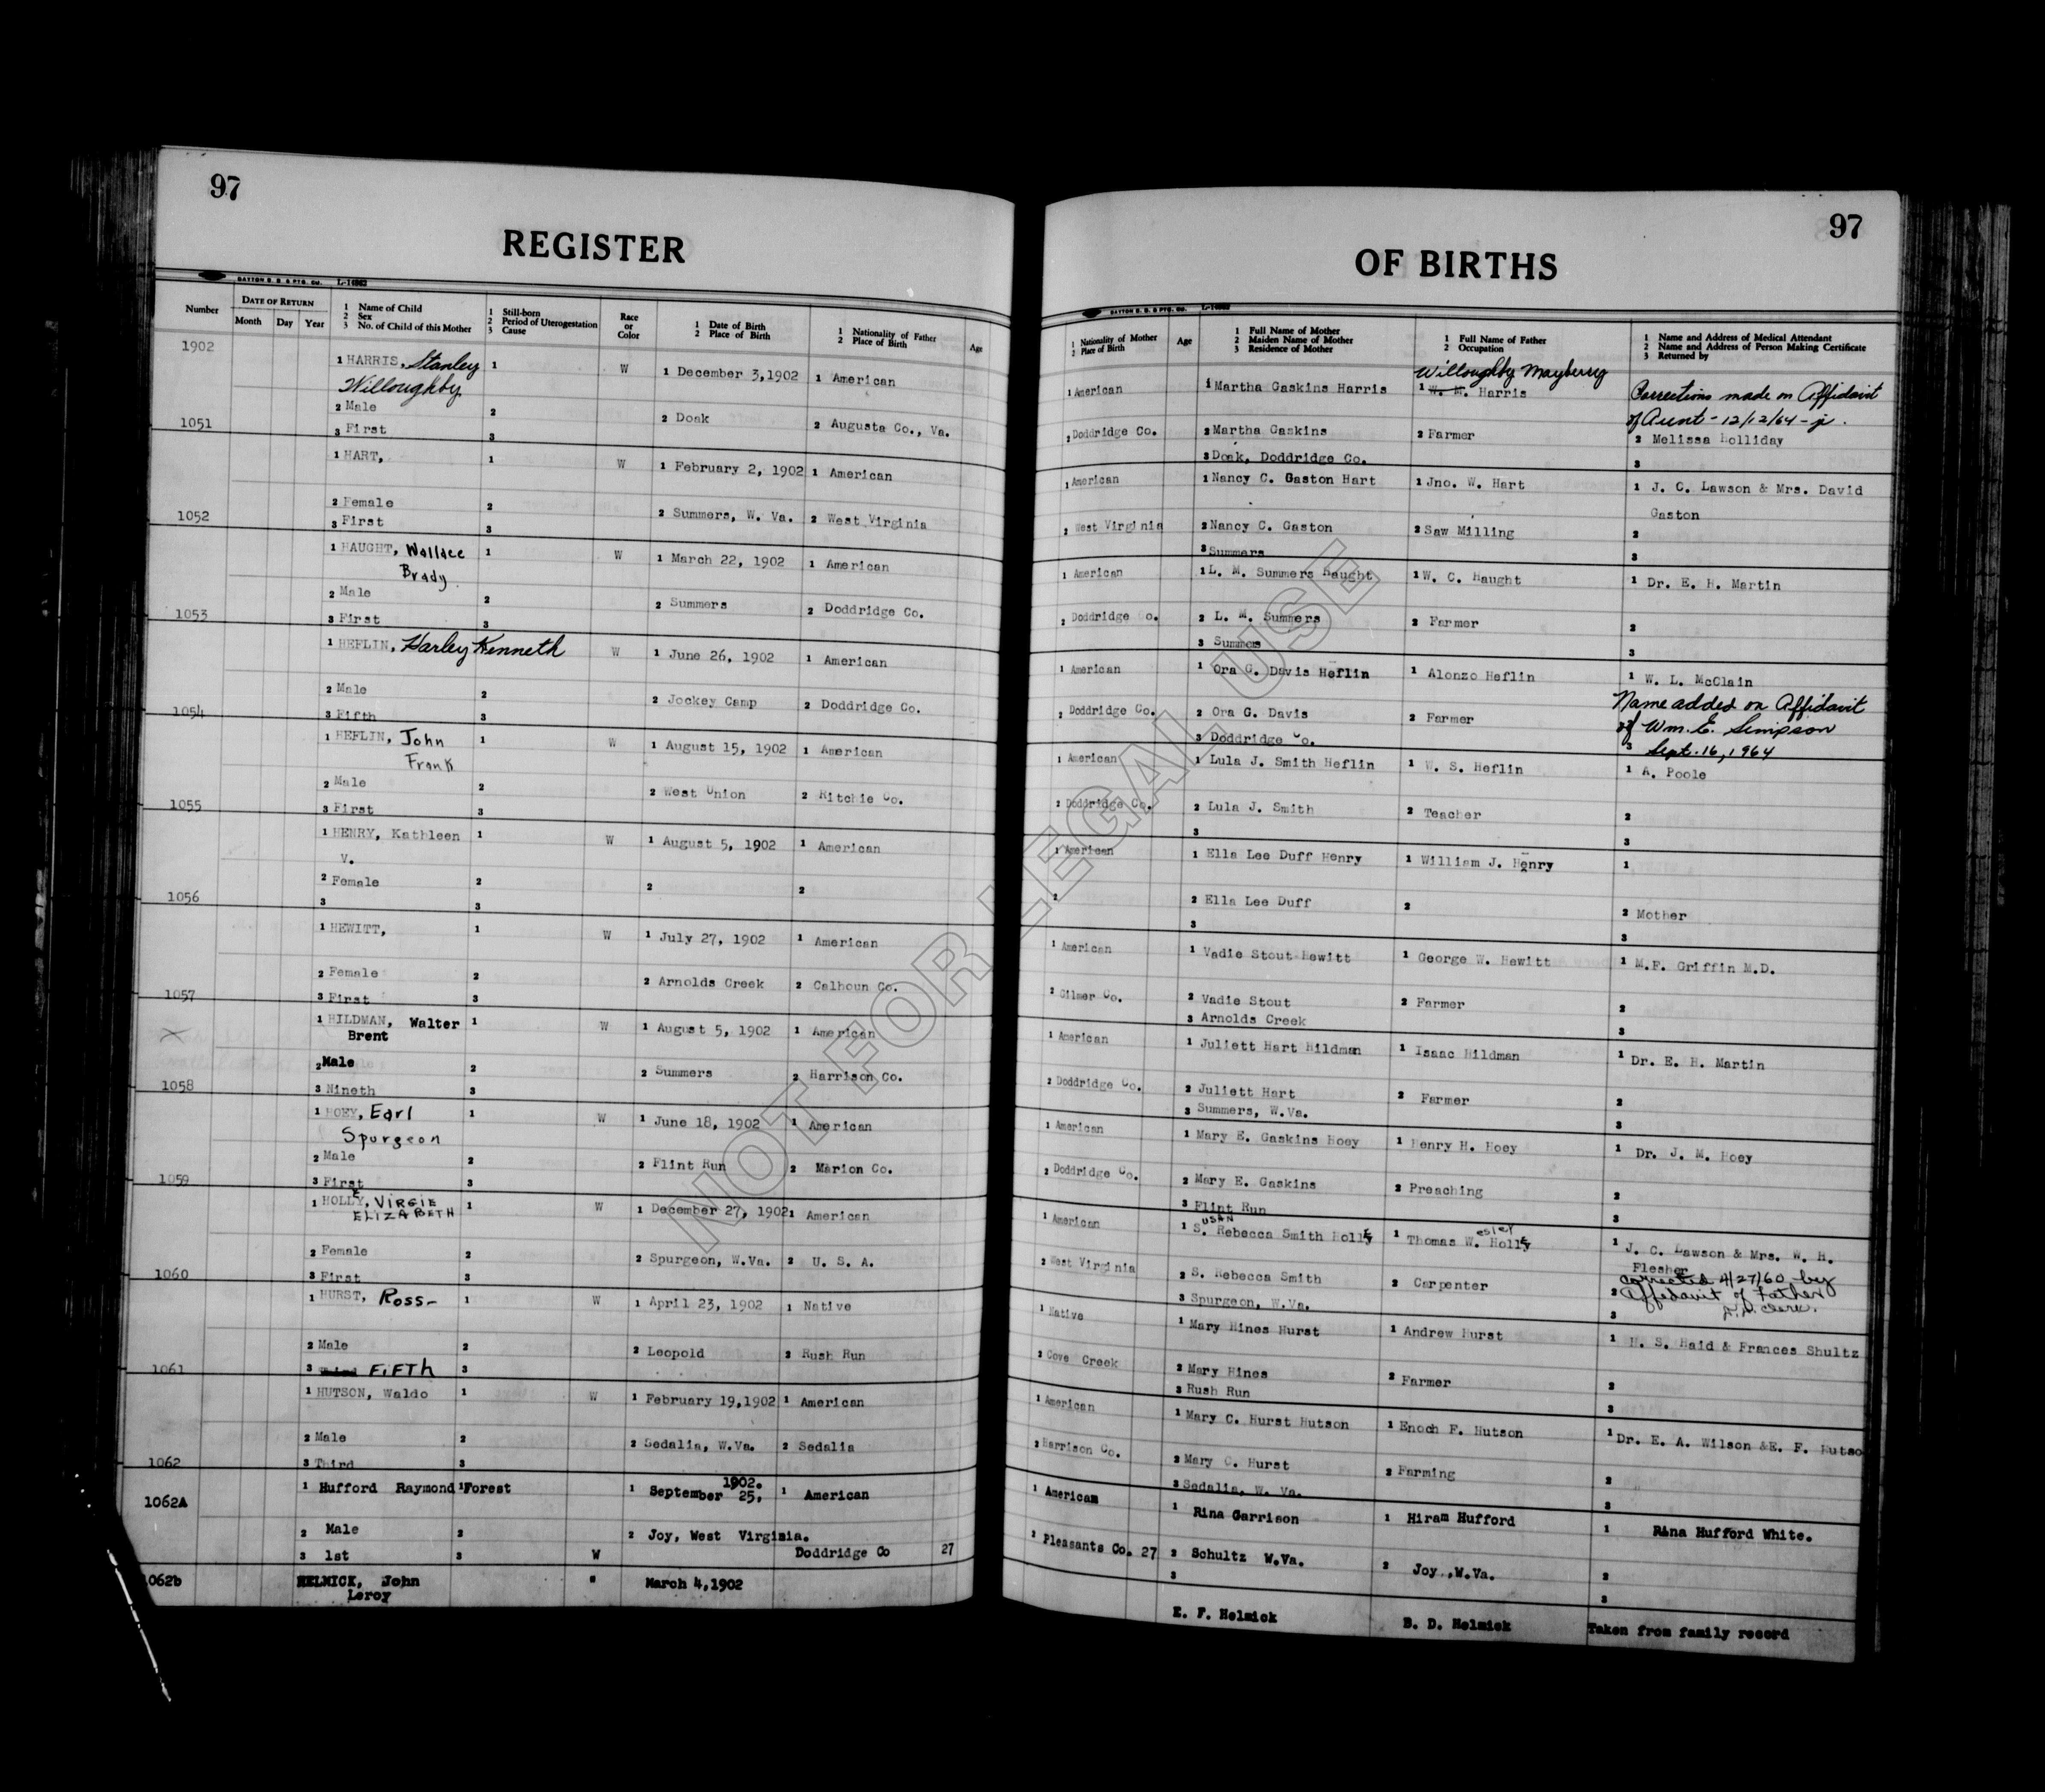 97
REGISTER
DAYTON B. B. & PTG. CO. L-14963
Number
DATE OF RETURN
Month Day Year
1 Name of Child
2 Sex
3 No. of Child of this Mother
1 Still-born
2 Period of Uterogestation
3 Cause
Race or Color
1 Date of Birth
2 Place of Birth
1 Nationality of Father
2 Place of Birth
Age
1902
1 HARRIS, Stanley 1 W 1 December 3,1902 1 American
Willoughby
2 Male 2 2 Doak 2 Augusta Co., Va.
1051 3 First 3
1 HART, 1 W 1 February 2, 1902 1 American
2 Female 2 2 Summers, W. Va. 2 West Virginia
1052 3 First 3
1 HAUGHT, Wallace 1 W 1 March 22, 1902 1 American
Brady
2 Male 2 2 Summers 2 Doddridge Co.
1053 3 First 3
1 HEFLIN, Harley Kenneth W 1 June 26, 1902 1 American
2 Male 2 2 Jockey Camp 2 Doddridge Co.
1054 3 Fifth 3
1 HEFLIN, John 1 W 1 August 15, 1902 1 American
Frank
2 Male 2 2 West Union 2 Ritchie Co.
1055 3 First 3
1 HENRY, Kathleen 1 W 1 August 5, 1902 1 American
V.
2 Female 2 2 2
1056 3 3
1 HEWITT, 1 W 1 July 27, 1902 1 American
2 Female 2 2 Arnolds Creek 2 Calhoun Co.
1057 3 First 3
1 HILDMAN, Walter 1 W 1 August 5, 1902 1 American
Brent
2 Male 2 2 Summers 2 Harrison Co.
1058 3 Nineth 3
1 HOEY, Earl 1 W 1 June 18, 1902 1 American
Spurgeon
2 Male 2 2 Flint Run 2 Marion Co.
1059 3 First 3
1 HOLLE, VIRGIE 1 W 1 December 27, 1902 1 American
ELIZABETH
2 Female 2 2 Spurgeon, W.Va. 2 U. S. A.
1060 3 First 3
1 HURST, Ross- 1 W 1 April 23, 1902 1 Native
2 Male 2 2 Leopold 2 Rush Run
1061 3 Third FiFTh 3
1 HUTSON, Waldo 1 W 1 February 19,1902 1 American
2 Male 2 2 Sedalia, W.Va. 2 Sedalia
1062 3 Third 3
1062A 1 Hufford Raymond 1 Forest 1 September 25, 1902. 1 American
2 Male 2 2 Joy, West Virginia.
3 1st 3 W Doddridge Co 27
1062b HELMICK, John " March 4,1902
Leroy
97
OF BIRTHS
DAYTON B. B. & PTG. CO. L-14963
1 Nationality of Mother
2 Place of Birth
Age
1 Full Name of Mother
2 Maiden Name of Mother
3 Residence of Mother
1 Full Name of Father
2 Occupation
1 Name and Address of Medical Attendant
2 Name and Address of Person Making Certificate
3 Returned by
Willoughby Mayberry
1 American 1 Martha Gaskins Harris 1 W. W. Harris Corrections made on Affidavit
of Aunt - 12/12/64 - jr.
2 Doddridge Co. 2 Martha Gaskins 2 Farmer 2 Melissa Holliday
3 Doak, Doddridge Co. 3
1 American 1 Nancy C. Gaston Hart 1 Jno. W. Hart 1 J. C. Lawson & Mrs. David
Gaston
2 West Virginia 2 Nancy C. Gaston 2 Saw Milling 2
3 Summers 3
1 American 1 L. M. Summers Haught 1 W. C. Haught 1 Dr. E. H. Martin
2 Doddridge Co. 2 L. M. Summers 2 Farmer 2
3 Summes 3
1 American 1 Ora G. Davis Heflin 1 Alonzo Heflin 1 W. L. McClain
2 Doddridge Co. 2 Ora G. Davis 2 Farmer Name added on Affidavit
of Wm. E. Simpson
3 Doddridge Co. 3 Sept. 16, 1964
1 American 1 Lula J. Smith Heflin 1 W. S. Heflin 1 A. Poole
2 Doddridge Co. 2 Lula J. Smith 2 Teacher 2
3 3
1 American 1 Ella Lee Duff Henry 1 William J. Henry 1
2 2 Ella Lee Duff 2 2 Mother
3 3
1 American 1 Vadie Stout Hewitt 1 George W. Hewitt 1 M.F. Griffin M.D.
2 Gilmer Co. 2 Vadie Stout 2 Farmer 2
3 Arnolds Creek 3
1 American 1 Juliett Hart Hildman 1 Isaac Hildman 1 Dr. E. H. Martin
2 Doddridge Co. 2 Juliett Hart 2 Farmer 2
3 Summers, W.Va. 3
1 American 1 Mary E. Gaskins Hoey 1 Henry H. Hoey 1 Dr. J. M. Hoey
2 Doddridge Co. 2 Mary E. Gaskins 2 Preaching 2
3 Flint Run 3
1 American 1 Susan Rebecca Smith HollE 1 Thomas Wesley HollE 1 J. C. Lawson & Mrs. W. H.
Flesher
2 West Virginia 2 S. Rebecca Smith 2 Carpenter corrected 4/27/60 by
2 affidavit of Father
3 Spurgeon, W.Va. 3 clerk.
1 Native 1 Mary Hines Hurst 1 Andrew Hurst 1 H. S. Haid & Frances Shultz
2 Cove Creek 2 Mary Hines 2 Farmer 2
3 Rush Run 3
1 American 1 Mary C. Hurst Hutson 1 Enoch F. Hutson 1 Dr. E. A. Wilson &E. F. Hutso
2 Harrison Co. 2 Mary C. Hurst 2 Farming 2
3 Sedalia, W. Va. 3
1 American 1 Rina Garrison 1 Hiram Hufford 1 Rina Hufford White.
1 Pleasants Co. 27 2 Schultz W.Va. 2 Joy.,W.Va. 2
3 3
E. F. Helmick B. D. Helmick Taken from family record
NOT FOR LEGAL USE